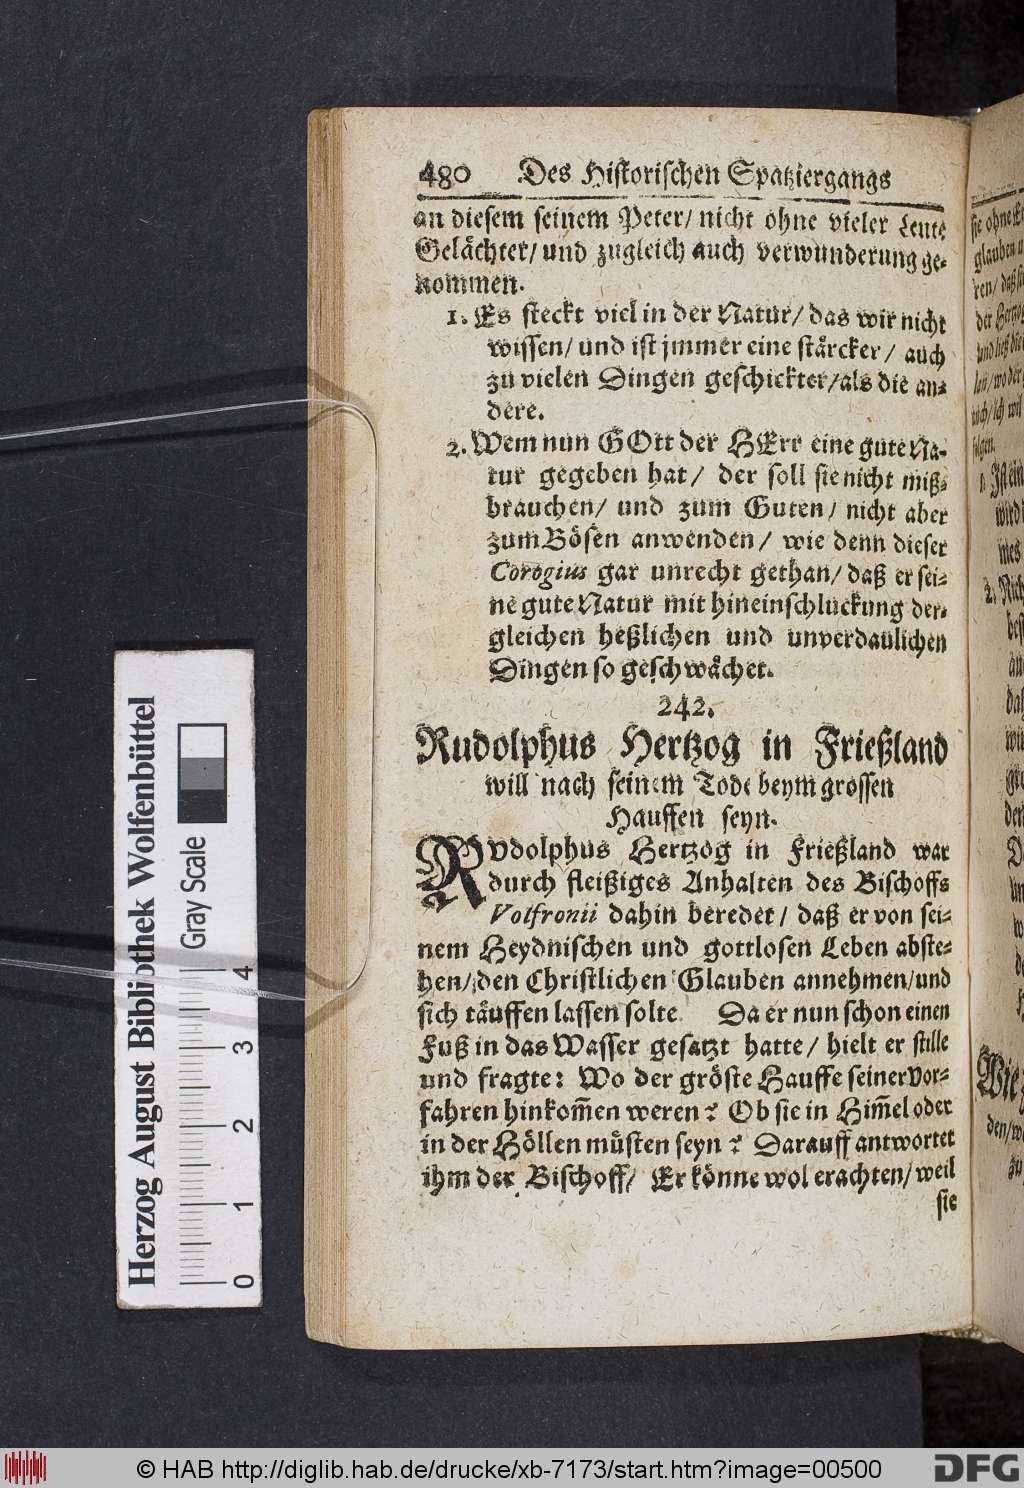 480 Des Historischen Spatziergangs
an diesem seinem Peter/ nicht ohne vieler Leute
Gelächter/ und zugleich auch verwunderung ge-
nommen.
1. Es steckt viel in der Natur/ das wir nicht
wissen/ und ist jmmer eine stärcker/ auch
zu vielen Dingen geschickter/als die an-
dere.
2. Wem nun GOtt der HErr eine gute Na-
tur gegeben hat/ der soll sie nicht miß-
brauchen/ und zum Guten/ nicht aber
zum Bösen anwenden/ wie denn dieser
Corogius gar unrecht gethan/ daß er sei-
ne gute Natur mit hineinschluckung der-
gleichen heßlichen und unverdaulichen
Dingen so geschwächet.
242.
Rudolphus Hertzog in Frießland
will nach seinem Tode beym grossen
Hauffen seyn.
RUdolphus Hertzog in Frießland war
durch fleißiges Anhalten des Bischoffs
Volfronii dahin beredet/ daß er von sei-
nem Heydnischen und gottlosen Leben abste-
hen/ den Christlichen Glauben annehmen/und
sich täuffen lassen solte. Da er nun schon einen
Fuß in das Wasser gesatzt hatte/ hielt er stille
und fragte: Wo der gröste Hauffe seiner Vor-
fahren hinkom̃en weren? Ob sie in Him̃el oder
in der Höllen müsten seyn? Darauff antwortet
ihm der Bischoff/ Er könne wol erachten/ weil
sie
sie ohne
glauben
ren/
der Hertzog
und ließ die
wo der
ich wil
folgen.
wird
mes
2. Nich
Wie
den/
zu
Herzog August Bibliothek Wolfenbüttel
Gray Scale
0 1 2 3 4
© HAB http://diglib.hab.de/drucke/xb-7173/start.htm?image=00500
DFG